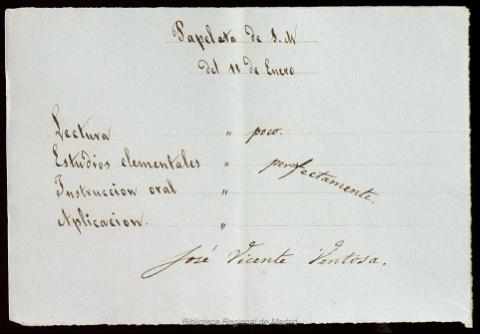 Papeleta de S. M
del 11 de Enero
Lectura " poco.
Estudios elementales " perfectamente.
Instruccion oral "
Aplicacion. "
José Vicente Ventosa.
Biblioteca Regional de Madrid